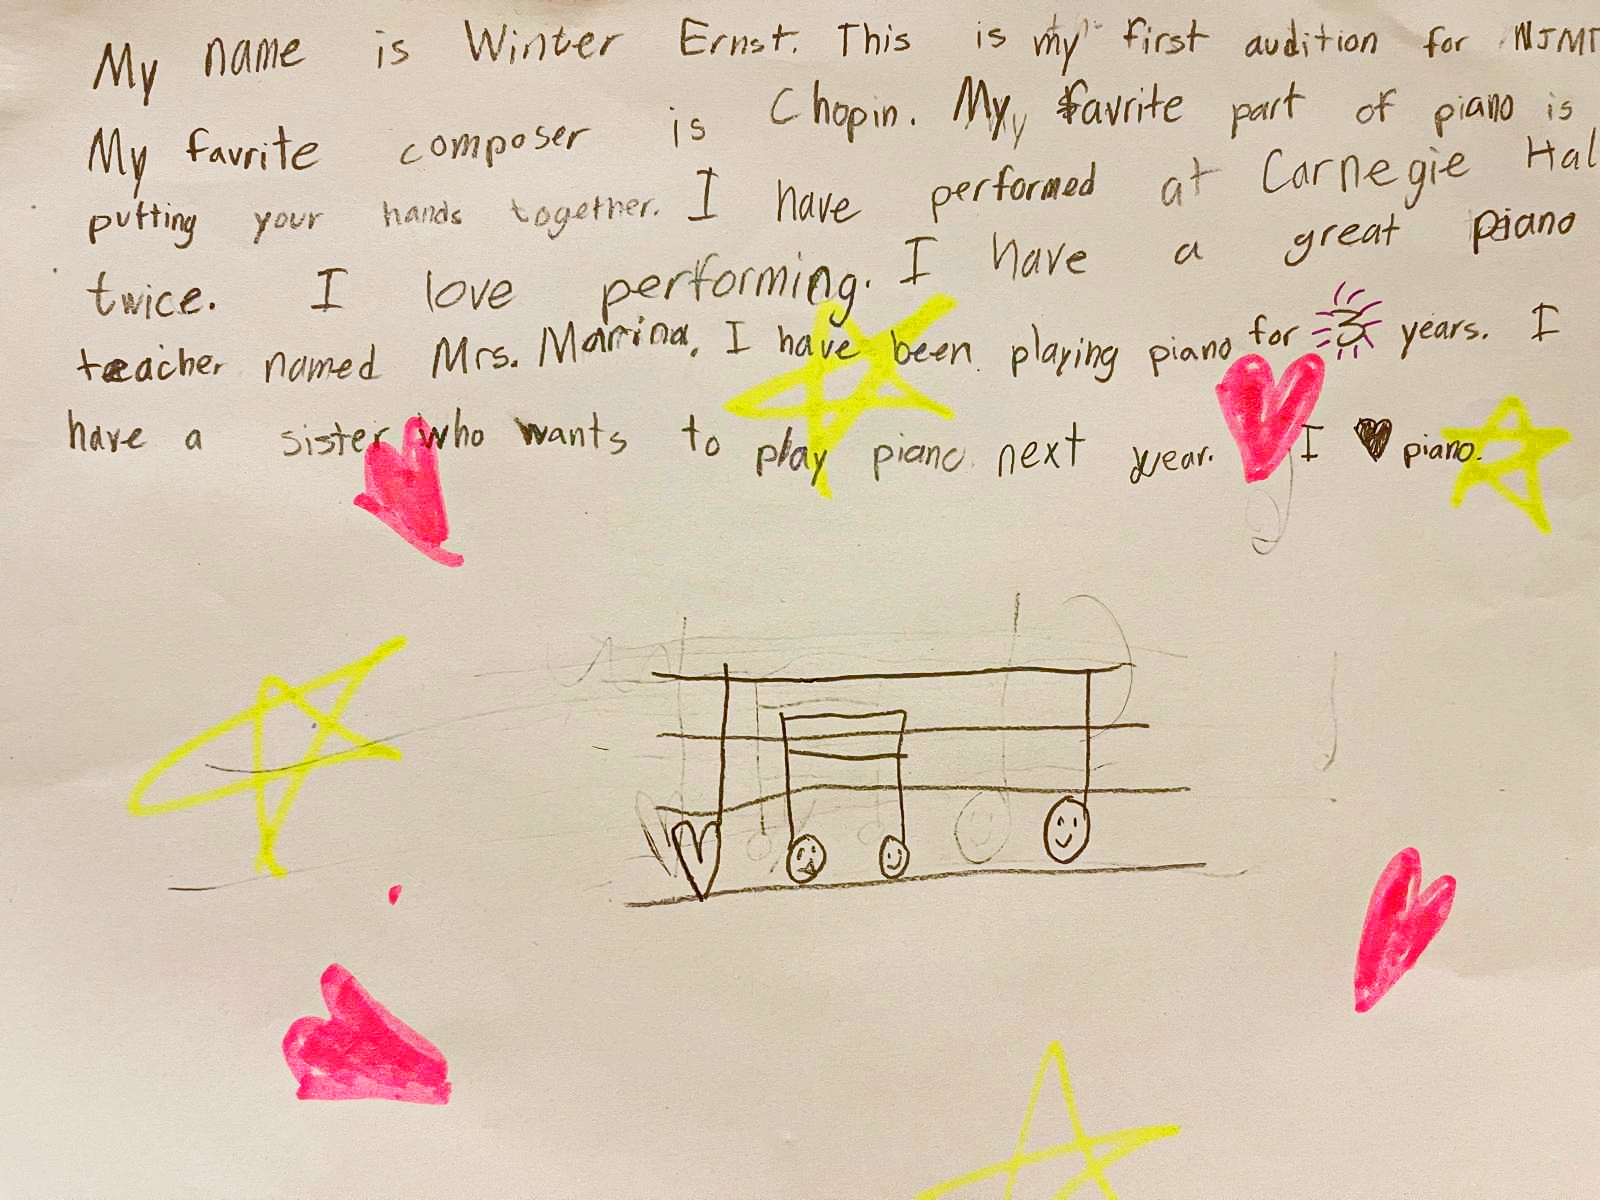 My name is Winter Ernst. This is my first audition for NJMT
My favrite composer is Chopin. My favrite part of piano is
putting your hands together. I have performed at Carnegie Hal
twice. I love performing. I have a great piano
teacher named Mrs. Marina. I have been playing piano for 3 years. I
have a sister who wants to play piano next year. I ♥ piano.